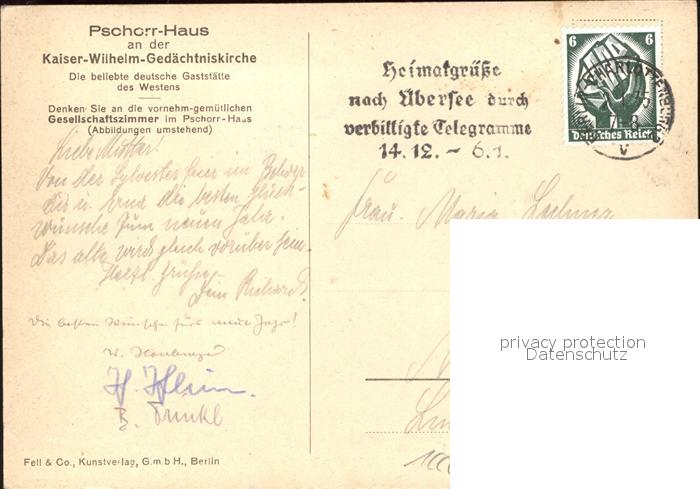 Pschorr-Haus
an der
Kaiser-Wilhelm-Gedächtniskirche
Die beliebte deutsche Gaststätte
des Westens
Denken Sie an die vornehm-gemütlichen
Gesellschaftszimmer im Pschorr-Haus
(Abbildungen umstehend)
Liebe Mutter!
Von der Sylvesterfeier im
Dir u. Erna die besten Glück-
wünsche zum neuen Jahr.
Das alte wird gleich vorüber sein.
Herzl. Grüße
Dein Richard
Die besten Wünsche fürs neue Jahr!
Fell & Co., Kunstverlag, G.m b H., Berlin
Heimatgrüße
nach Übersee durch
verbilligte Telegramme
14.12. – 6.1.
6 6
Deutsches Reich
CHARLOTTENBURG
Frau Maria
privacy protection
Datenschutz